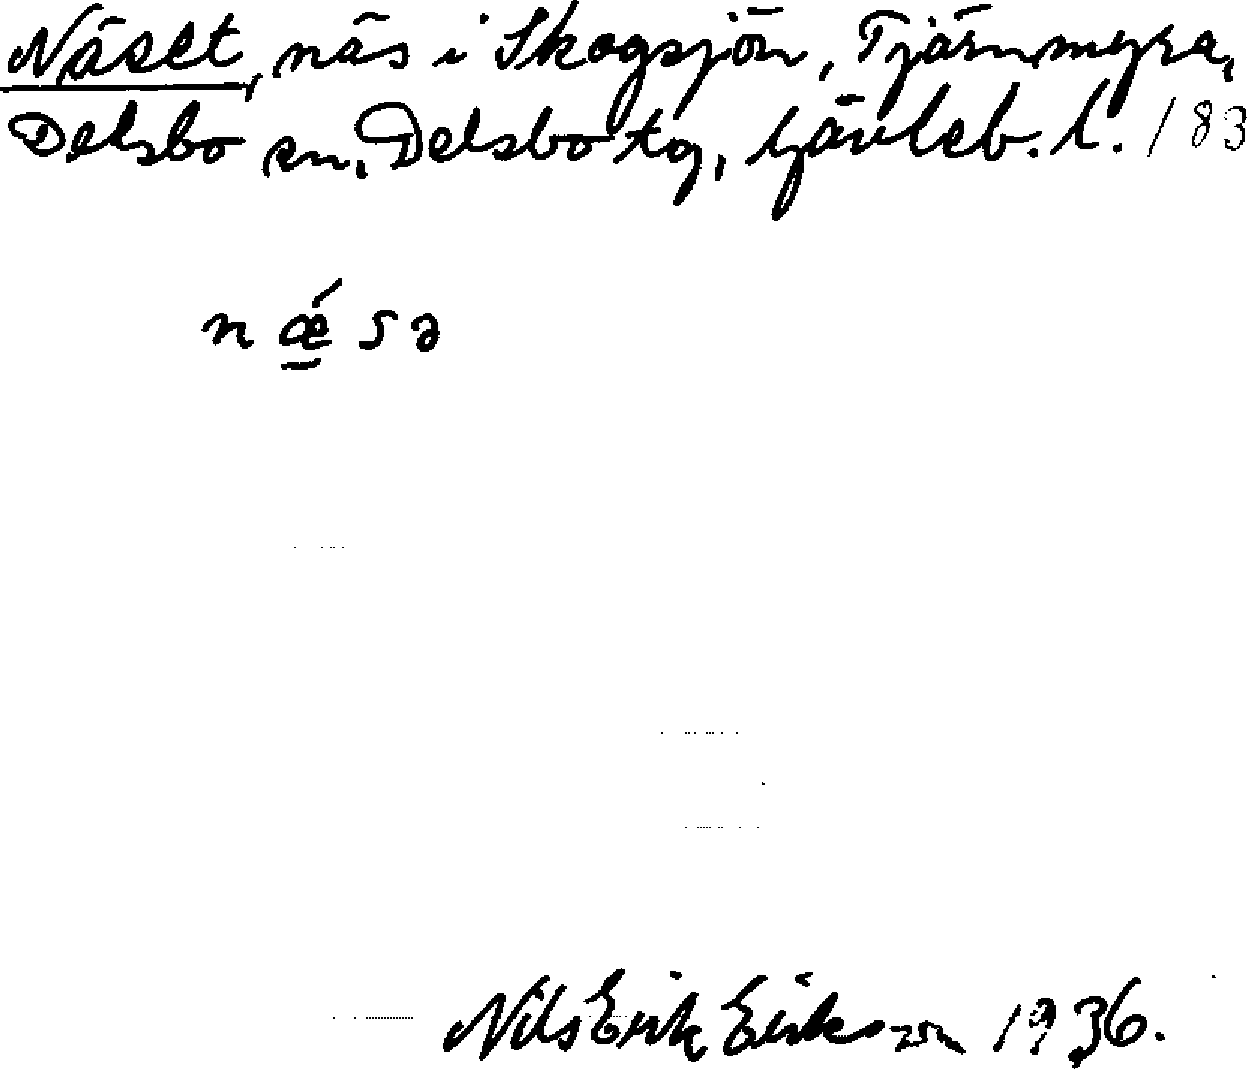 Näset, näs i Skogsjön, Tjärnmyra,
Delsbo sn, Delsbo tg, Gävleb. l. 183
n ǽ s ə
Nils Erik Eriksson 1936.